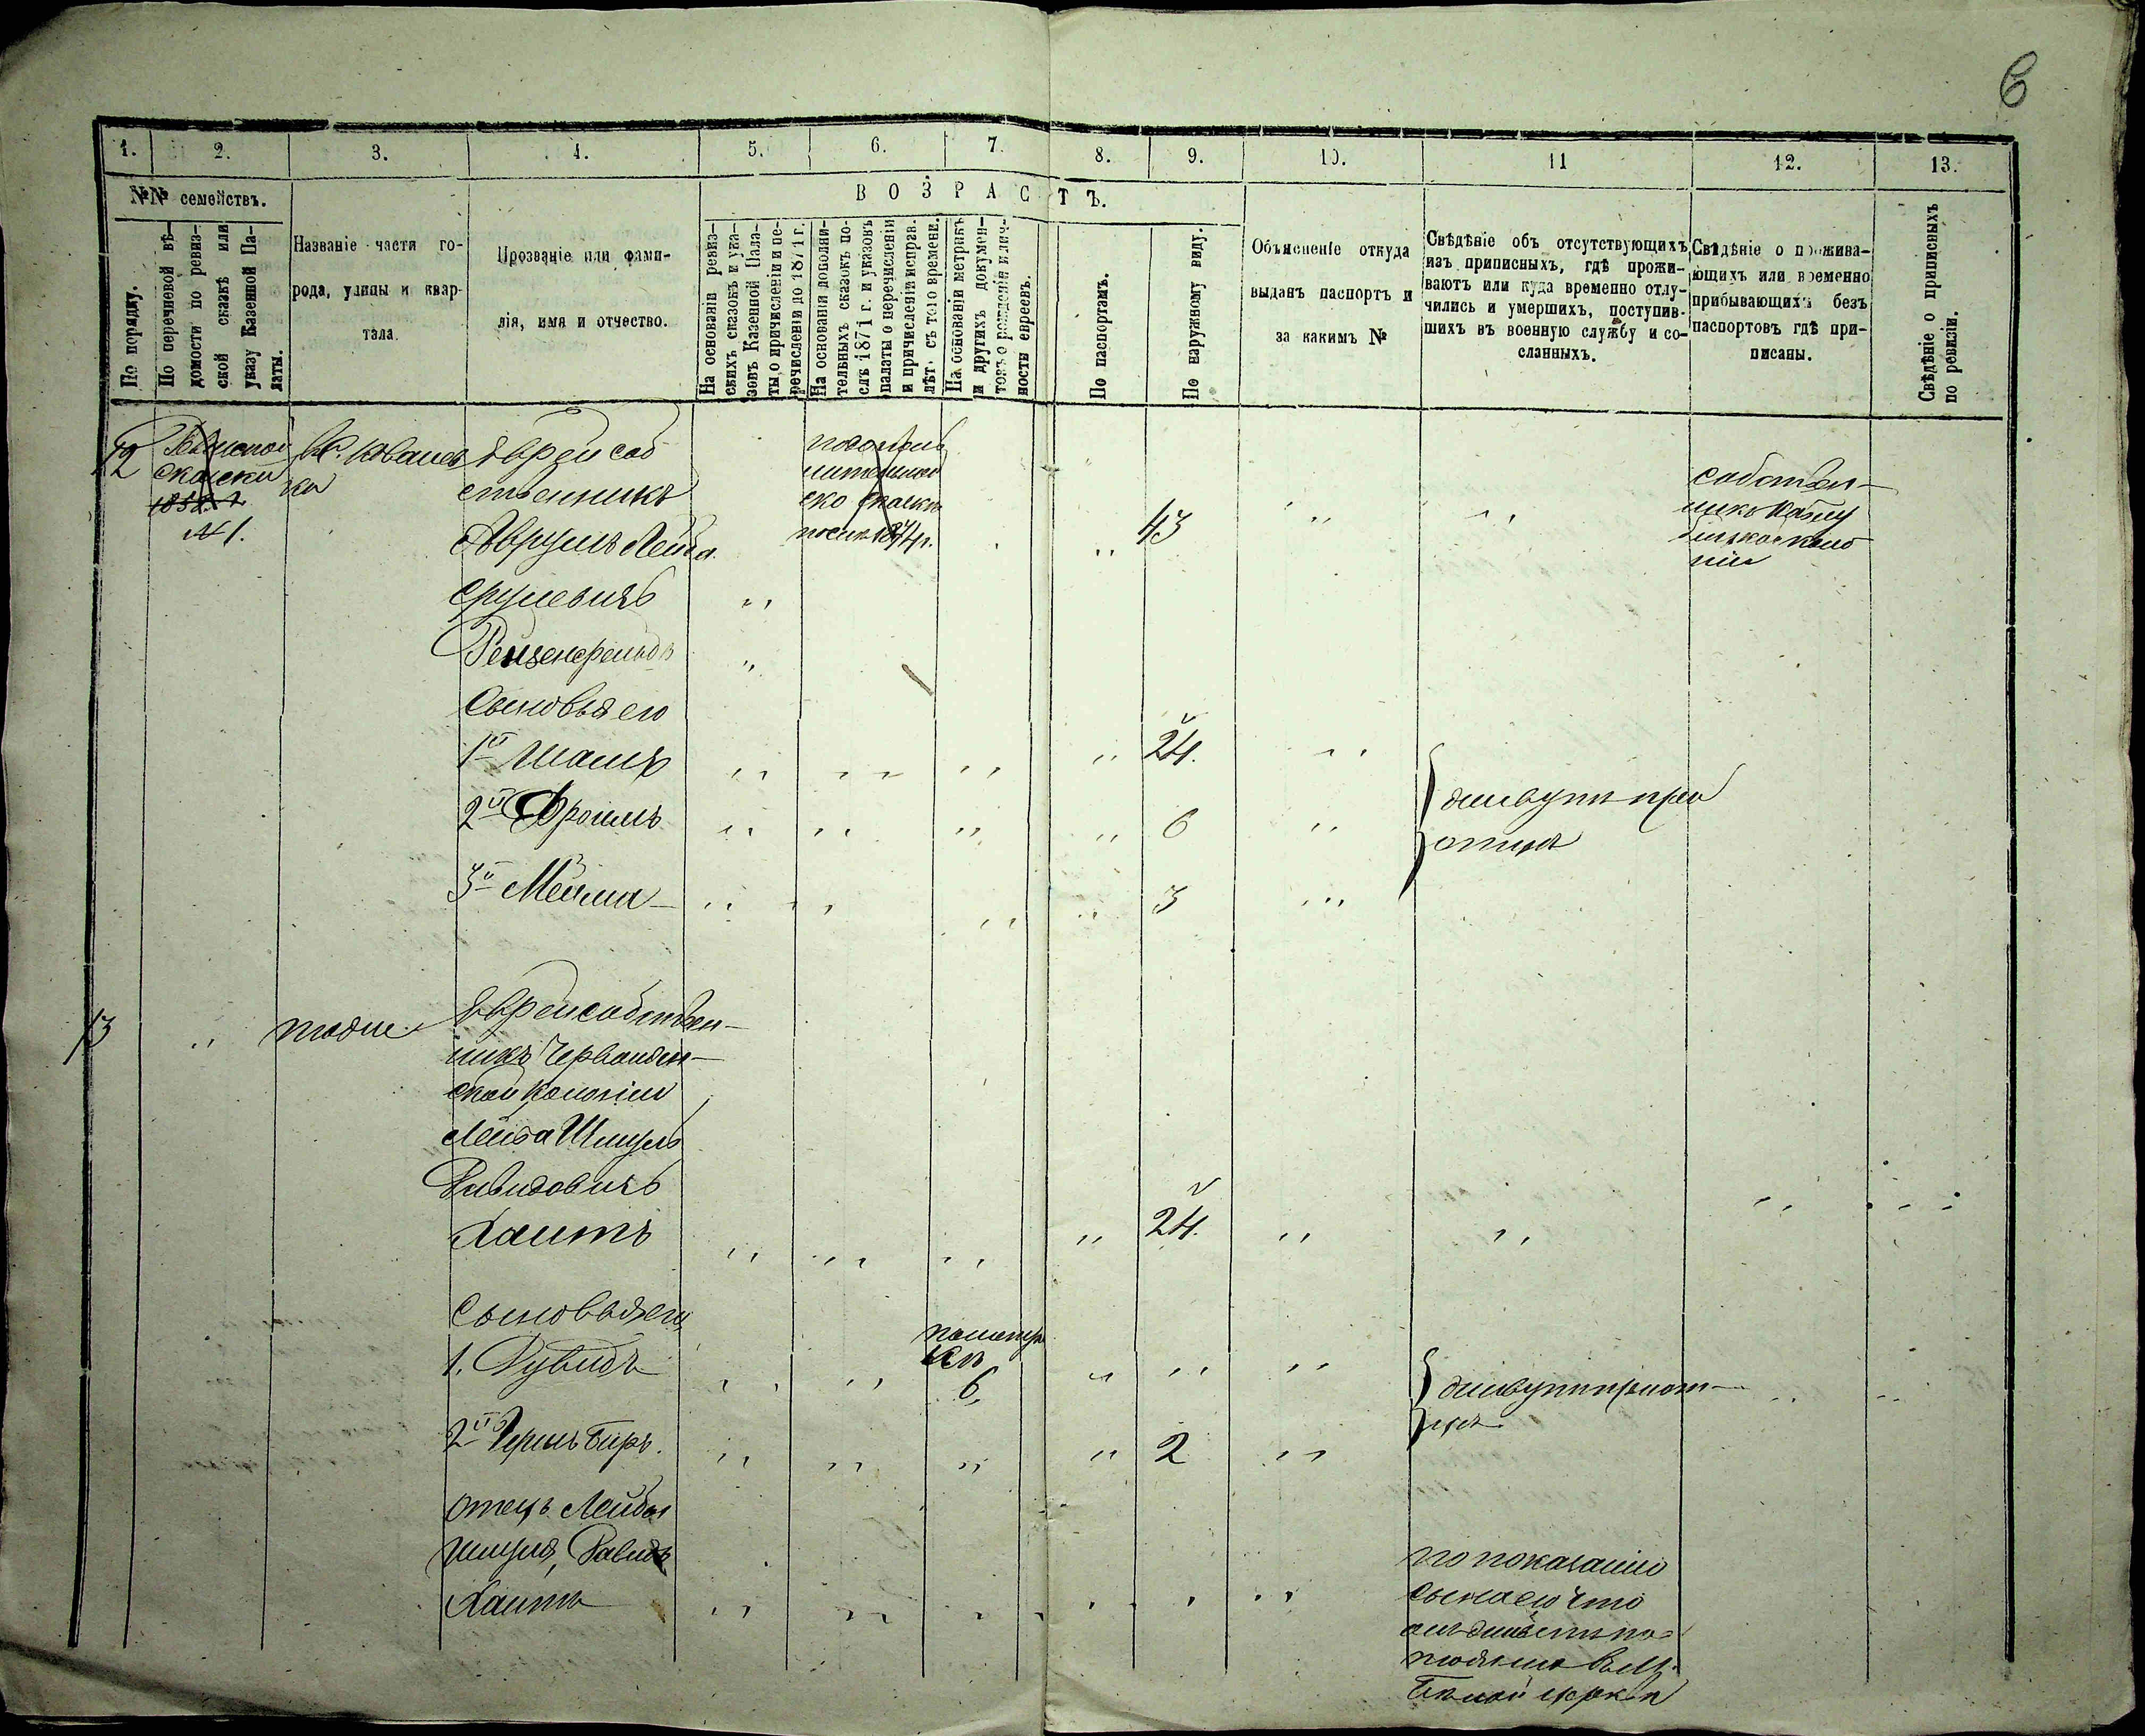 6
1.
2.
3.
4.
5.
6.
7.
8.
9.
10.
11
12.
13.
№№ семействъ.
ВОЗРАСТЪ.
По порядку.
По перечневой вѣ-
домости по ревиз-
ской сказкѣ или
указу Казенной Па-
латы.
Названіе части го-
рода, улицы и квар-
тала.
Прозваніе или фами-
лія, имя и отчество.
На основаніи ревиз-
скихъ сказокъ и ука-
зовъ Казенной Пала-
ты, о причисленіи и пе-
речисленіи до 1871 г.
На основаніи дополни-
тельныхъ сказокъ по-
слѣ 1871 г. и указовъ
палаты о перечисленіи
и причисленіи исправ.
лѣт. съ того времени.
На основаніи метрикъ
и другихъ докумен-
товъ о рожденіи и лич-
ности евреевъ.
По паспортамъ.
По наружному виду.
Объясненіе откуда
выданъ паспортъ и
за какимъ №
Свѣдѣніе объ отсутствующихъ
изъ приписныхъ, гдѣ прожи-
ваютъ или куда временно отлу-
чились и умершихъ, поступив-
шихъ въ военную службу и со-
сланныхъ.
Свѣдѣніе о прожива-
ющихъ или временно
прибывающихъ безъ
паспортовъ гдѣ при-
писаны.
Свѣдѣніе о приписныхъ
по ревизіи.
12
сказки
1858 г
№ 1.
Еврей соб
ственникъ
Аврумъ Лейба
Срулевичъ
43
собствен-
никъ
коло
ніи
Сыновья его
1й
24.
2й Фроимъ
6
3й
3
живутъ при
отцѣ
13
тоже
Еврей собствен-
никъ
ской Колоніи
Лейба Шмуль
Давидовичъ
Хаитъ
24.
Сыновья его
1. Дувидъ
по метри
кѣ
6
2й Гершъ Беръ.
2
живутъ при от-
цѣ
отецъ Лейбы
Шмуля, Давидъ
Хаитъ
по показанію
сына его что
онъ живетъ по
въ М.
Бѣлой церкви